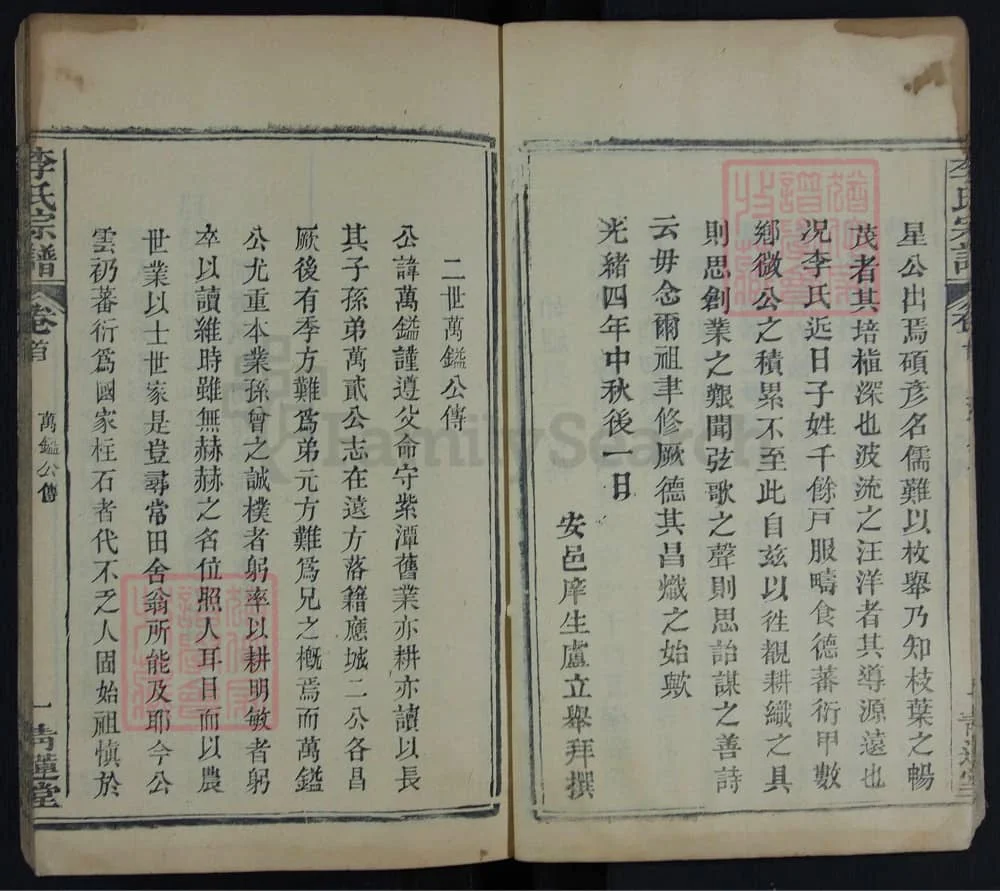 星公出焉碩彥名儒難以枚舉乃知枝葉之暢
茂者其培植深也波流之汪洋者其導源遠也
况李氏近日子姓千餘戸服疇食德蕃衍甲數
鄉微公之積累不至此自兹以徃觀耕織之具
則思創業之艱聞弦歌之聲則思詒謀之善詩
云毋念爾祖聿修厥德其昌熾之始歟
光緒四年中秋後一日
安邑庠生盧立舉拜撰
二世萬鎰公傳
公諱萬鎰謹遵父命守紫潭舊業亦耕亦讀以長
其子孫弟萬貳公志在遠方落籍應城二公各昌
厥後有季方難爲弟元方難爲兄之槪焉而萬鎰
公尤重本業孫曾之誠樸者躬率以耕明敏者躬
卒以讀維時雖無赫赫之名位照人耳目而以農
世業以士世家是豈尋常田舍翁所能及耶今公
雲礽蕃衍爲國家柱石者代不乏人固始祖慎於
李氏宗譜
卷首
萬鎰公傳
一
青蓮堂
FamilySearch